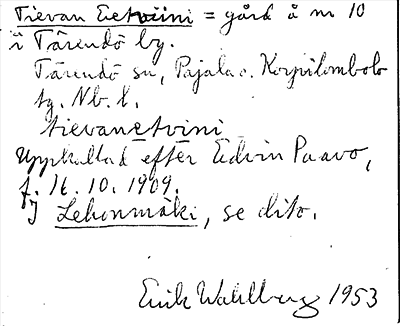 Tievan Eetviini = gård å nr 10
i Tärendö by.
Tärendö sn, Pajala o. Korpilombolo
tg. Nb. l.
tievanetvini
Uppkallad efter Edvin Paavo,
f. 16. 10. 1909.
I Lehonmäki, se dito.
Erik Wahlberg 1953